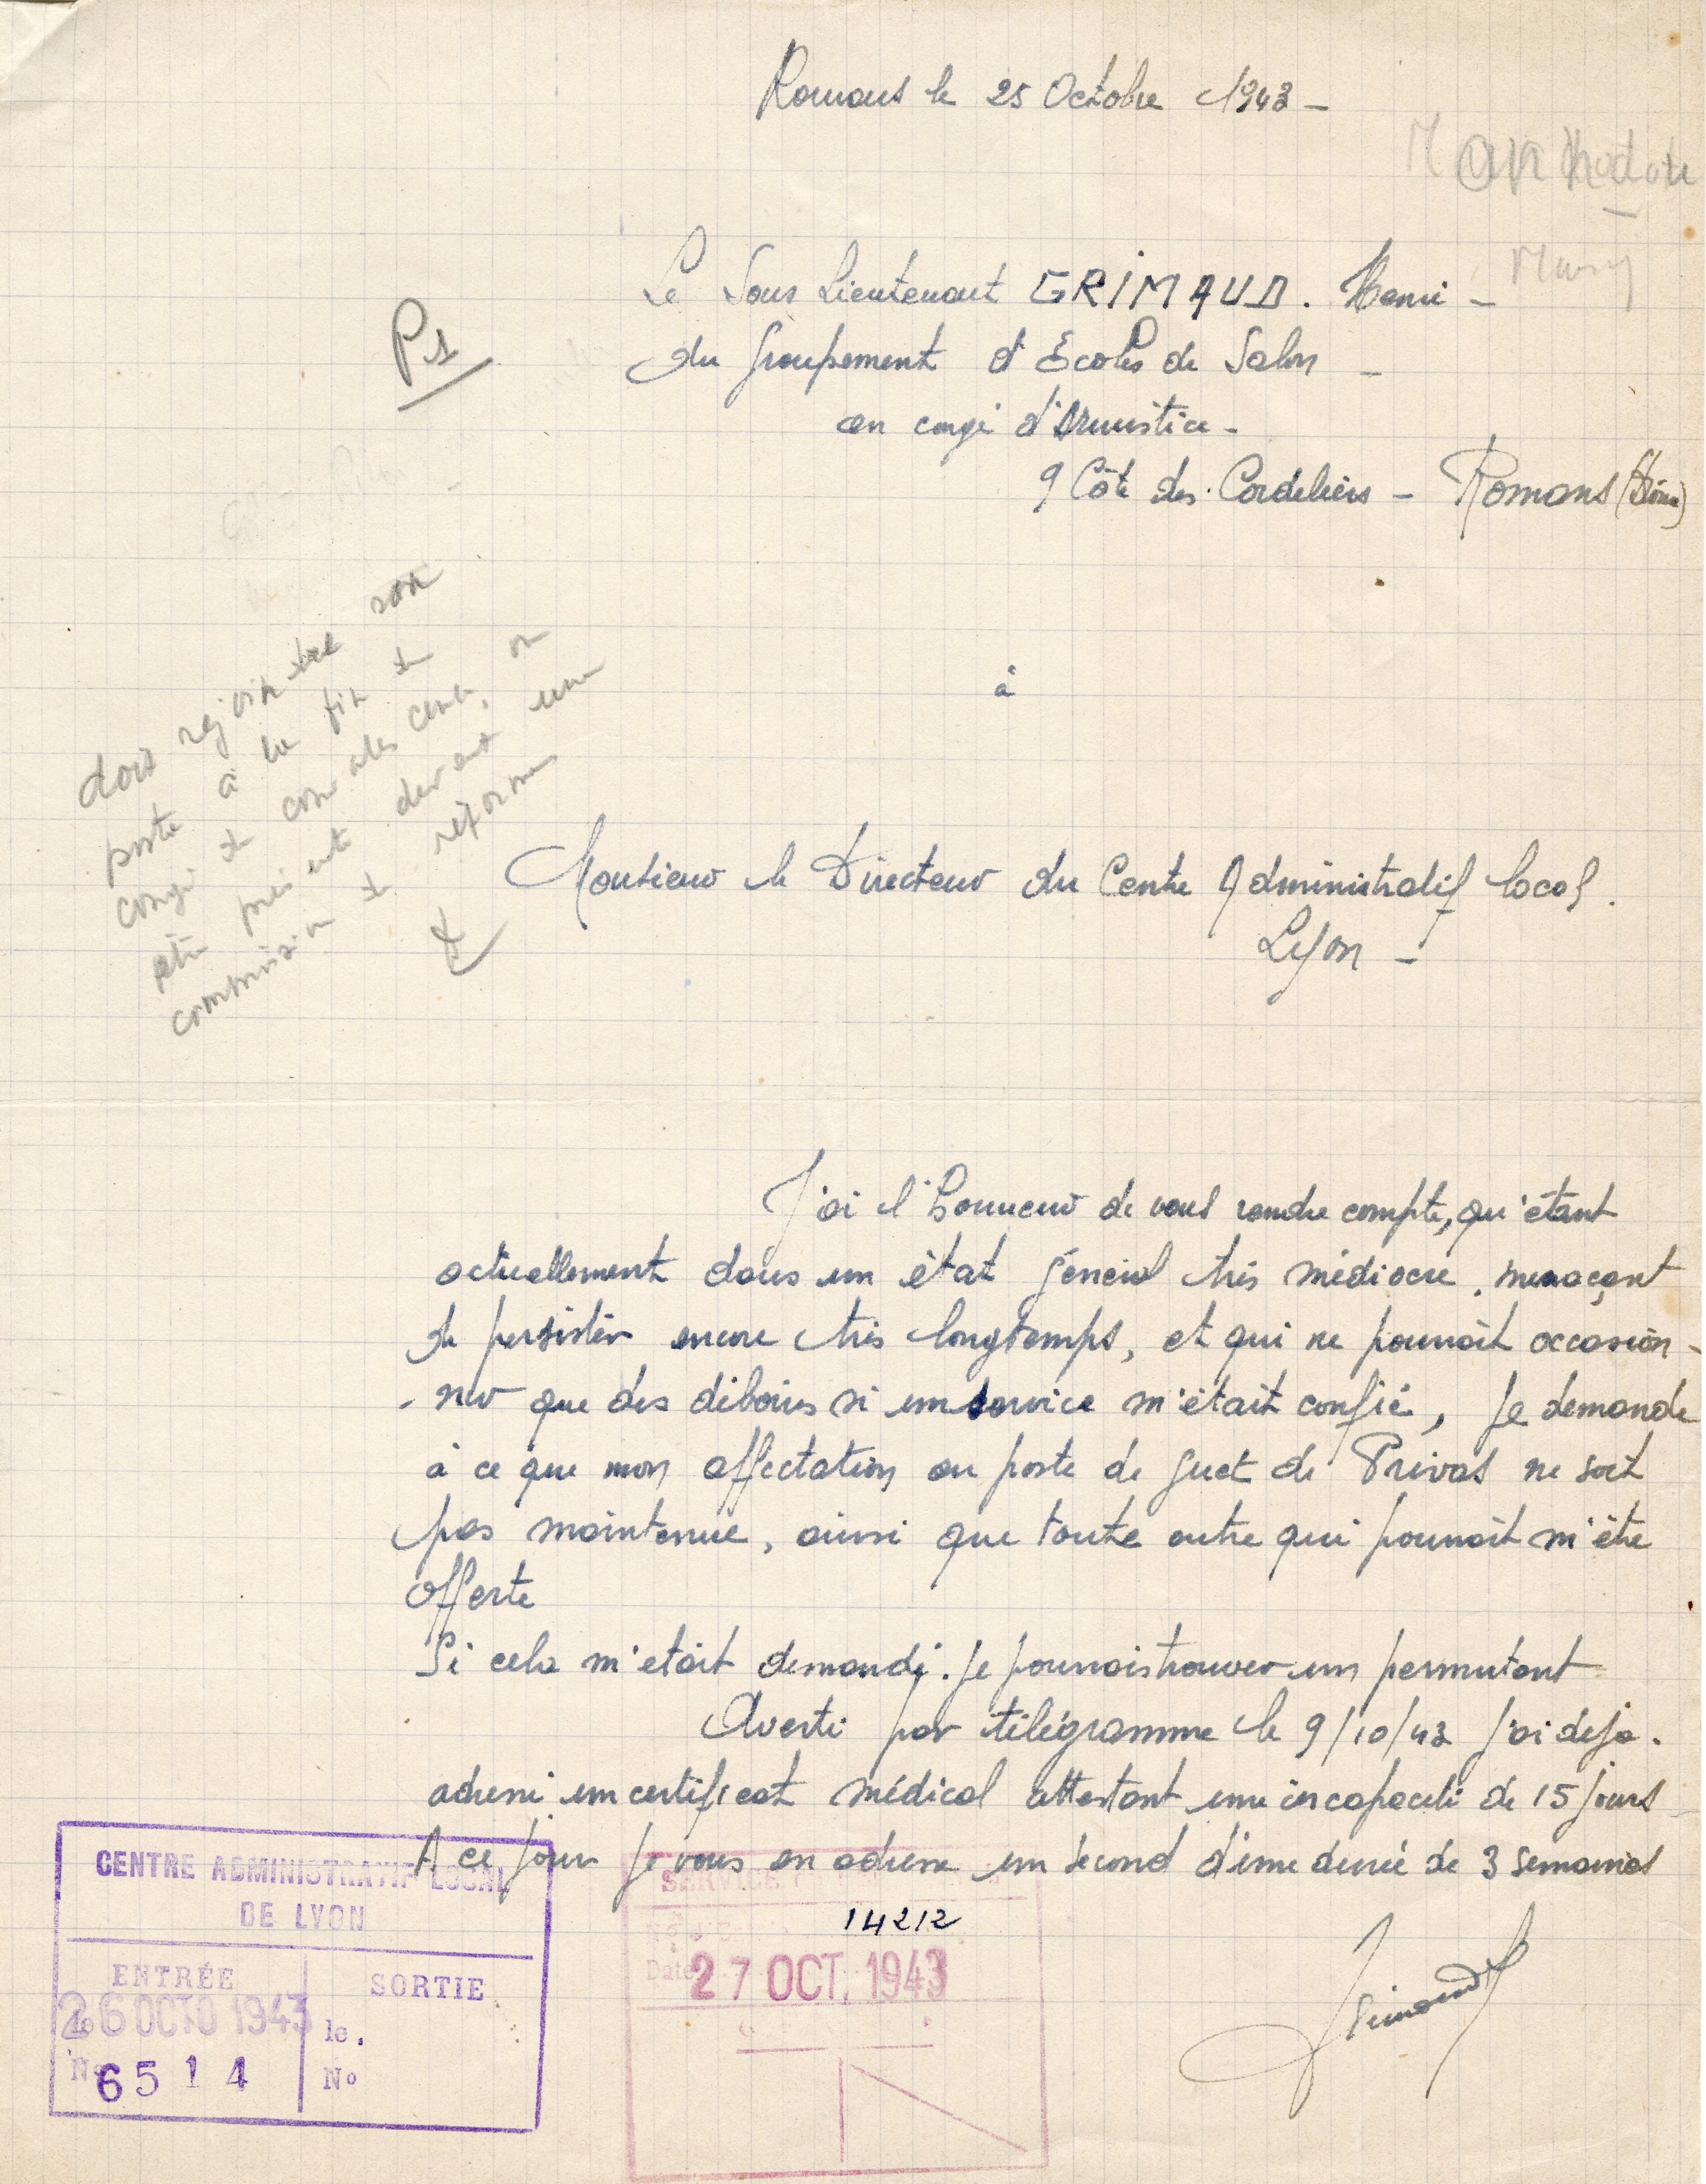 Romans le 25 Octobre 1943 –
Le Sous Lieutenant GRIMAUD. Henri –
du Groupement d'Ecoles de Salon –
en congé d'Armistice –
9 Côte des Cordeliers – Romans (Drôme)
P1
doit rejoindre son
poste à la fin de
congé de convalescence, ou
être présenté devant une
commission de réforme
à
Monsieur le Directeur du Centre Administratif local.
Lyon –
J'ai l'honneur de vous rendre compte, qu'étant
actuellement dans un état général très médiocre, menaçant
de persister encore très longtemps, et qui ne pourrait occasion-
-ner que des déboires si un service m'était confié, je demande
à ce que mon affectation au poste de guet de Privas ne soit
pas maintenue, ainsi que toute autre qui pourrait m'être
offerte
Si cela m'etait demandé. je pourrais trouver un permutant
Averti par télégramme le 9/10/43 j'ai deja.
adressé un certificat médical attestant une incapacité de 15 jours
A ce jour je vous en adresse un second d'une durée de 3 semaines
Grimaud
CENTRE ADMINISTRATIF LOCAL
DE LYON
ENTRÉE
SORTIE
le 26 OCTO 1943
le.
No 6514
No
SERVICE
14212
Date 27 OCT. 1943